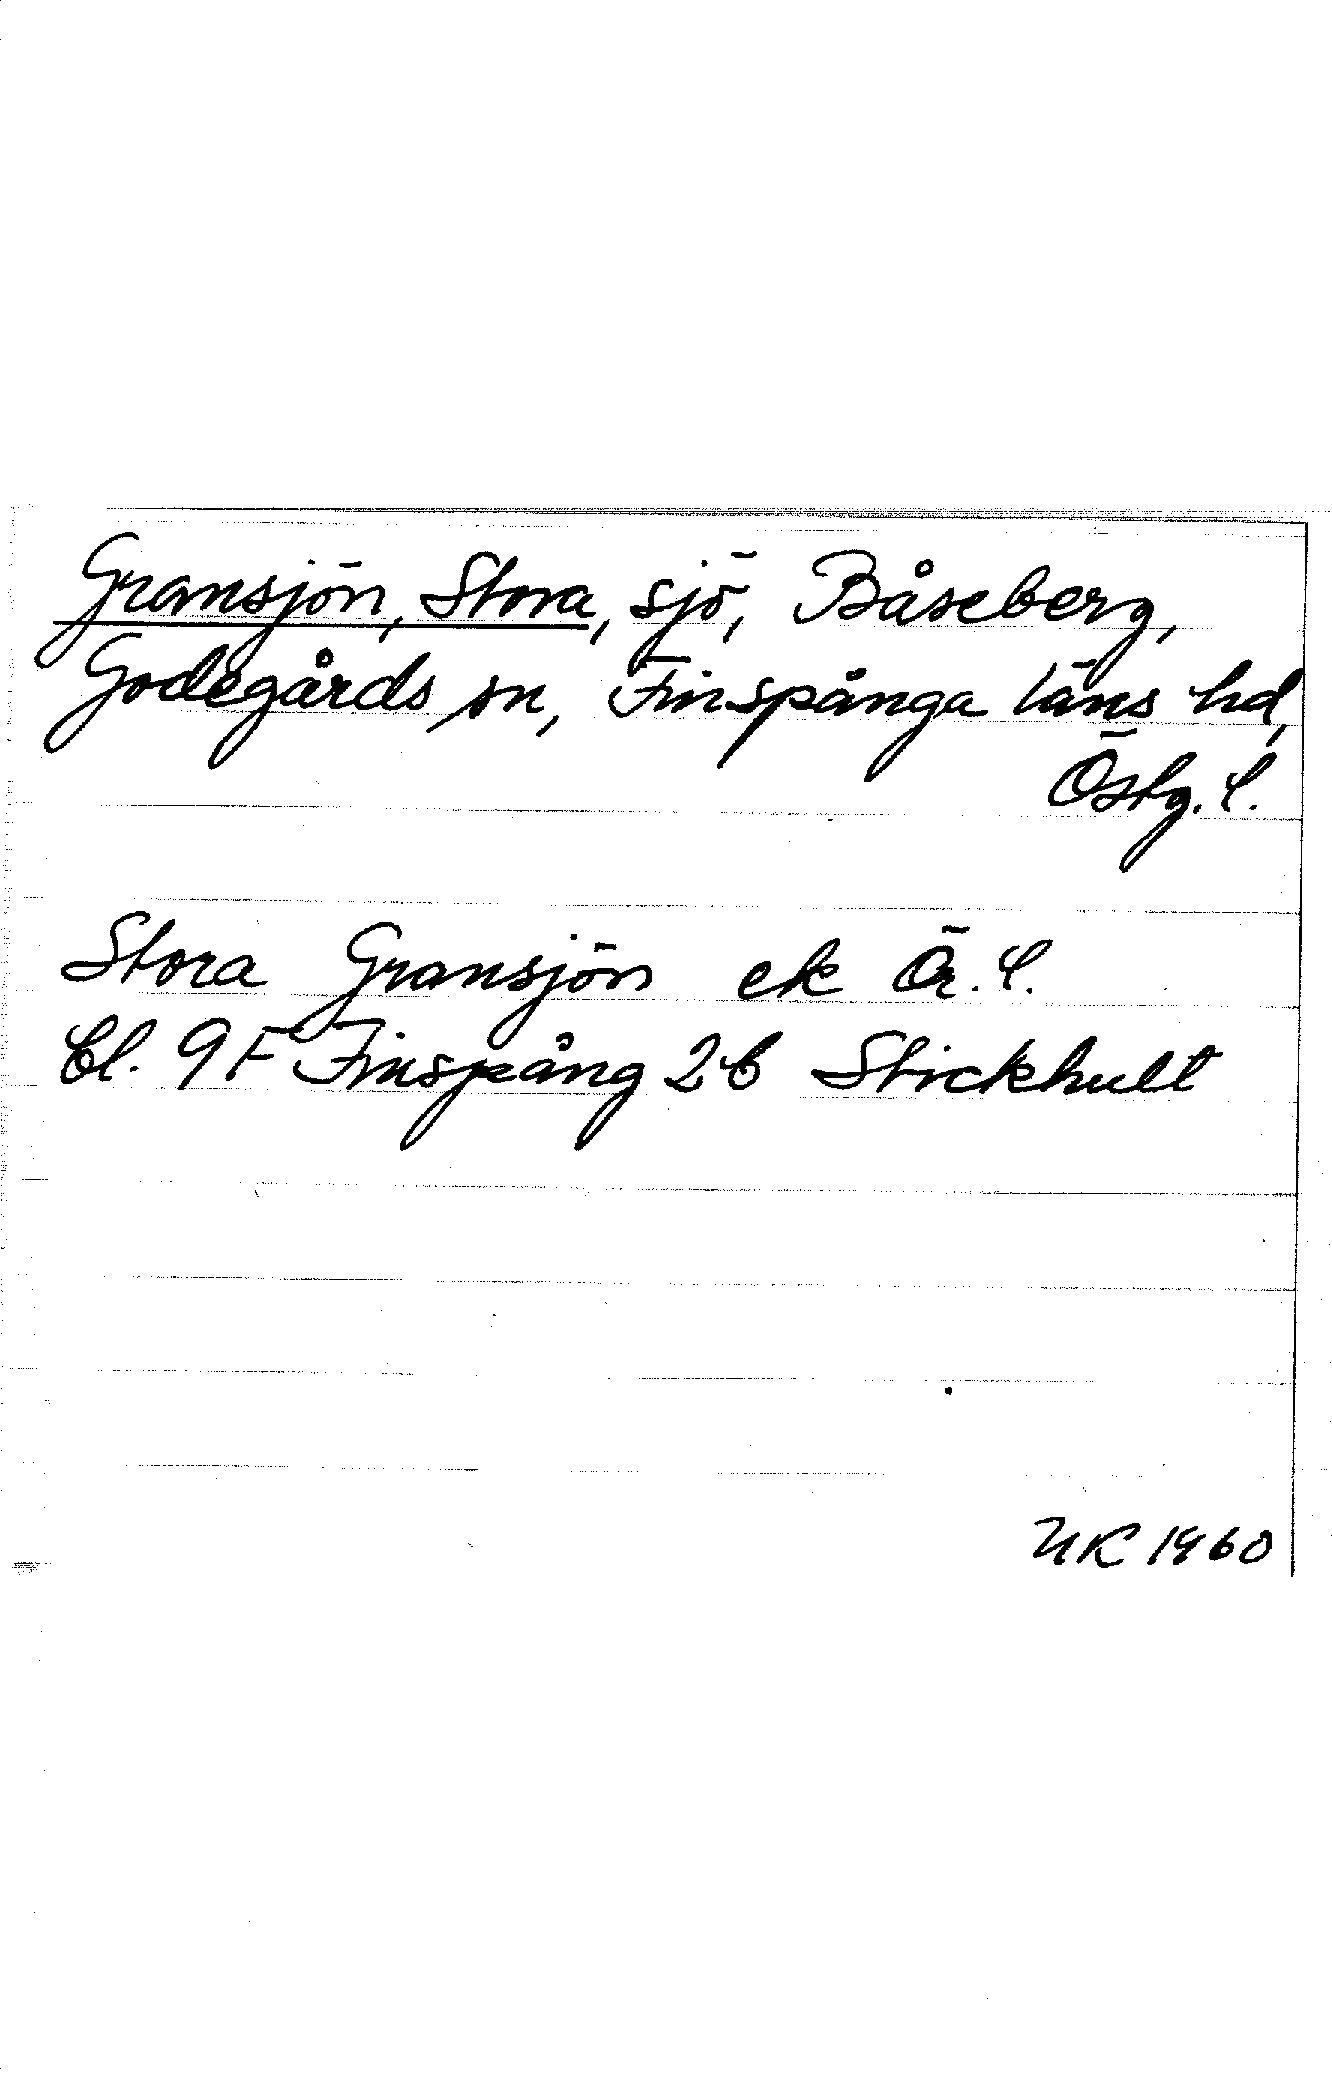 Gransjön, Stora, sjö, Båseberg,
Godegårds sn, Finspånga läns hd,
Östg. l.
Stora Gransjön ek Ör. l.
bl. 9F Finspång 2b Stickhult
NK 1960